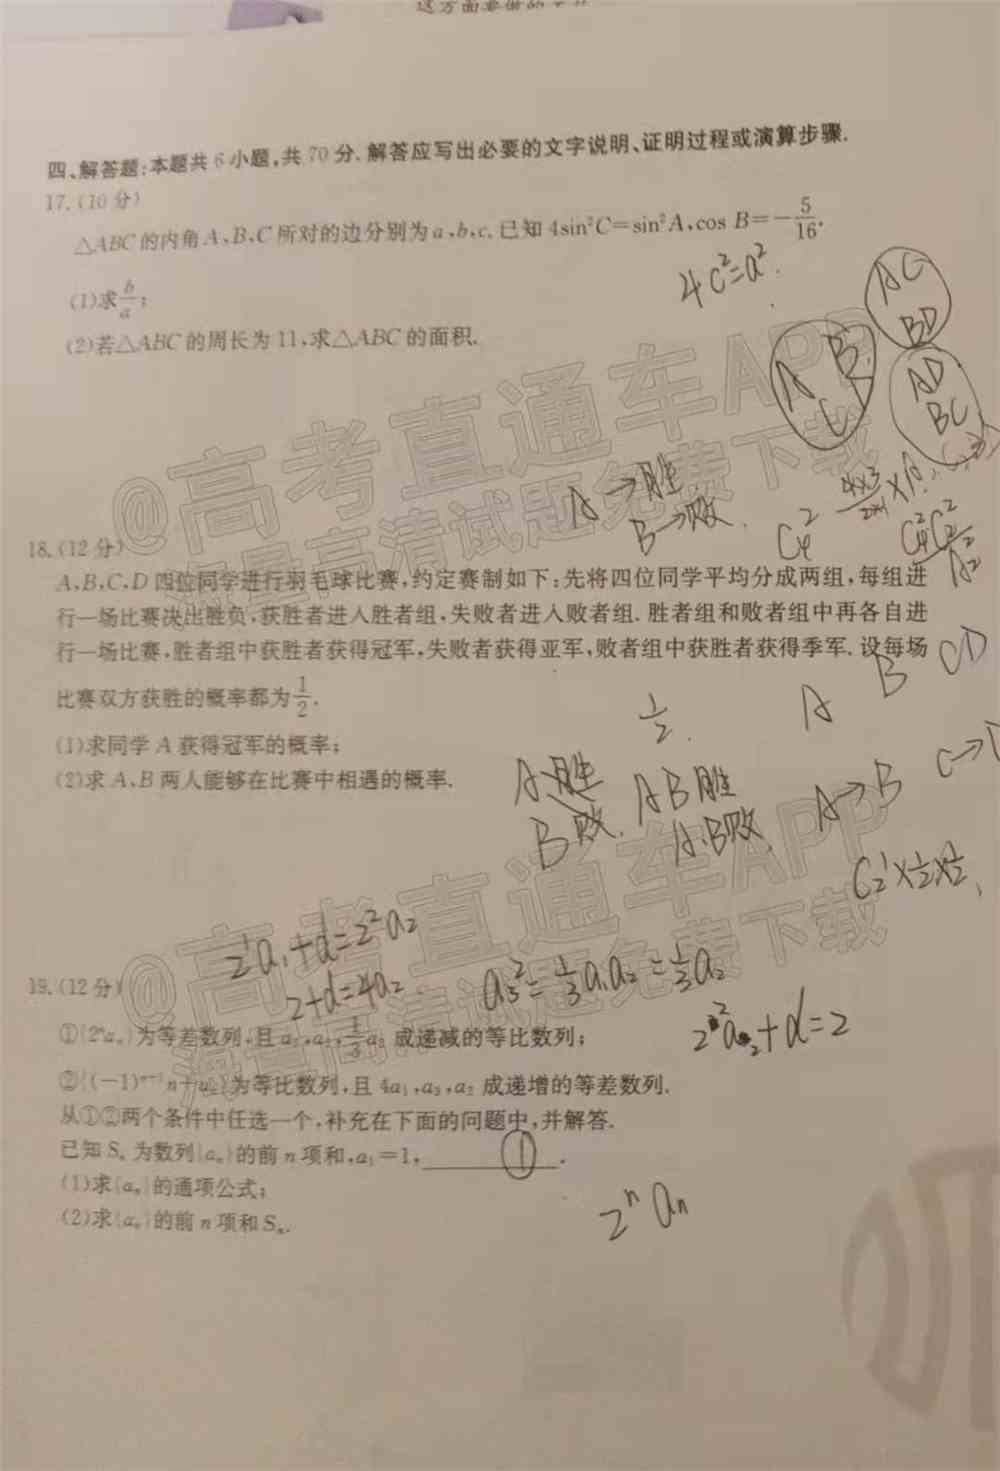 四、解答题:本题共6小题,共70分.解答应写出必要的文字说明、证明过程或演算步骤.
17.(10分)
△ABC的内角A,B,C所对的边分别为a,b,c.已知4sin²C=sin²A,cos B=-5/16.
4c²=a².
(1)求b/a;
(2)若△ABC的周长为11,求△ABC的面积.
AC
BD
A B
C
AD
BC
@高考直通车APP
海量高清试题免费下载
A→胜
B→败
18.(12分)
A,B,C,D四位同学进行羽毛球比赛,约定赛制如下:先将四位同学平均分成两组,每组进
行一场比赛决出胜负,获胜者进入胜者组,失败者进入败者组.胜者组和败者组中再各自进
行一场比赛,胜者组中获胜者获得冠军,失败者获得亚军,败者组中获胜者获得季军.设每场
比赛双方获胜的概率都为1/2.
A B CD
1/2.
(1)求同学A获得冠军的概率;
(2)求A,B两人能够在比赛中相遇的概率.
A胜 AB胜 A→B
B败. A.B败
@高考直通车APP
海量高清试题免费下载
2¹a₁+d=2²a₂
2+d=4a₂
19.(12分)
①{2ⁿaₙ}为等差数列,且a₁,a₂,1/3a₃成递减的等比数列;
②{(-1)ⁿ⁺¹n+aₙ}为等比数列,且4a₁,a₃,a₂成递增的等差数列.
从①②两个条件中任选一个,补充在下面的问题中,并解答.
已知Sₙ为数列{aₙ}的前n项和,a₁=1, ① .
(1)求{aₙ}的通项公式;
(2)求{aₙ}的前n项和Sₙ.
2ⁿaₙ